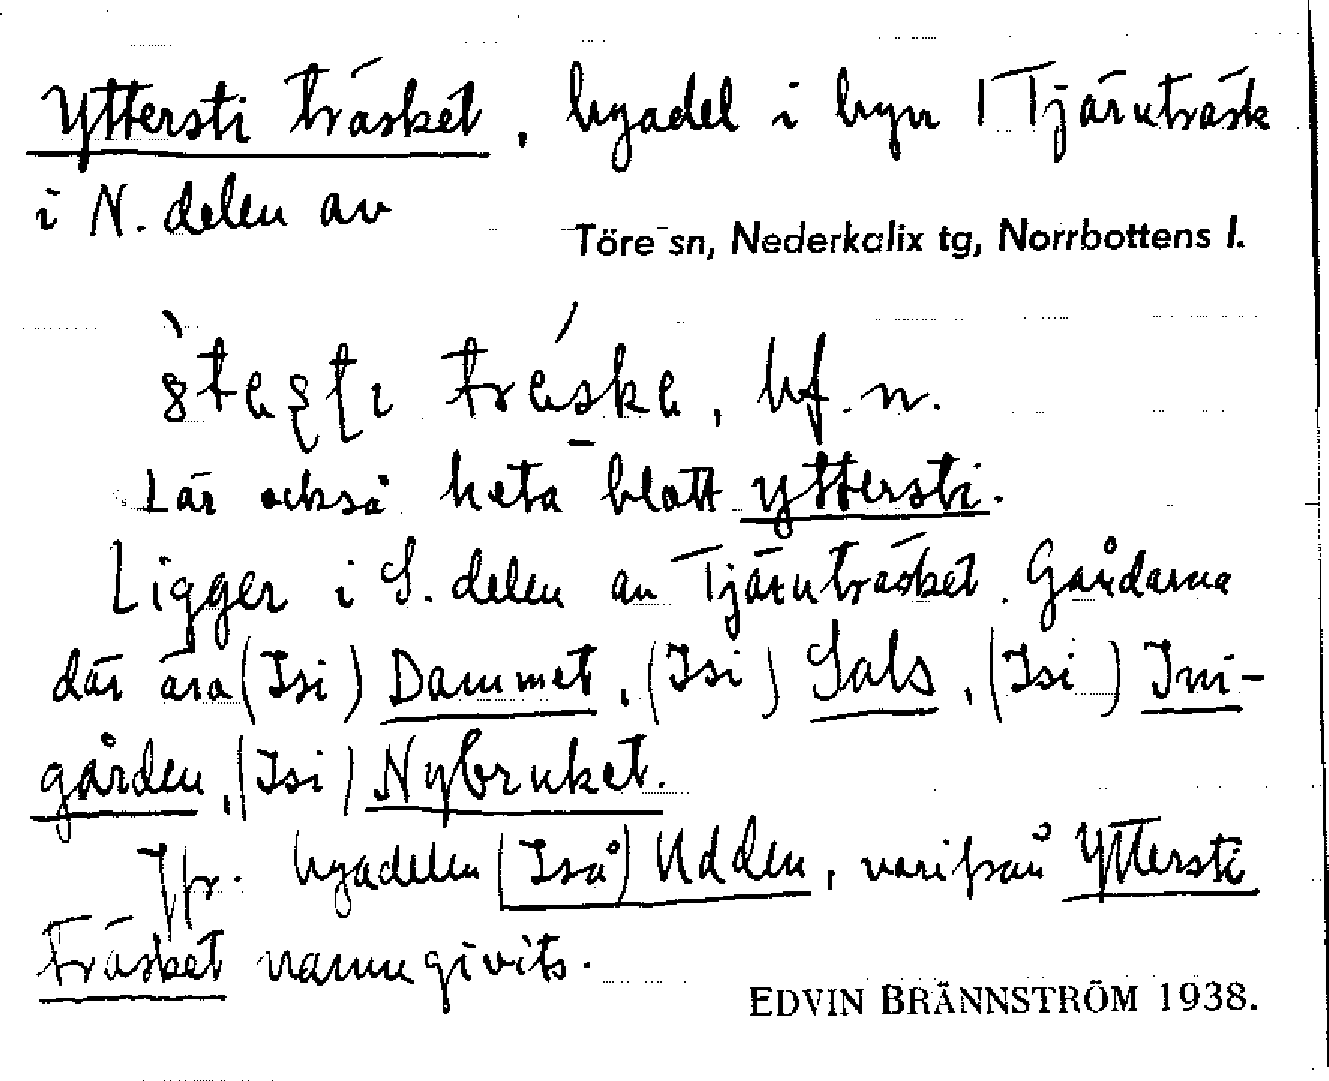 Yttersti träsket, byadel i byn Tjärnträsk
i N. delen av
Töre sn, Nederkalix tg, Norrbottens l.
träske, bf. n.
Lär också heta blott yttersti.
Ligger i S. delen av Tjärnträsket. Gårdarna
där ära (Isi) Dammet, (Isi) Sals, (Isi) Ini-
gården, (Isi) Nybruket.
Jfr. byadelen (Iså) Udden, varifrån Yttersti
träsket namngivits.
EDVIN BRÄNNSTRÖM 1938.